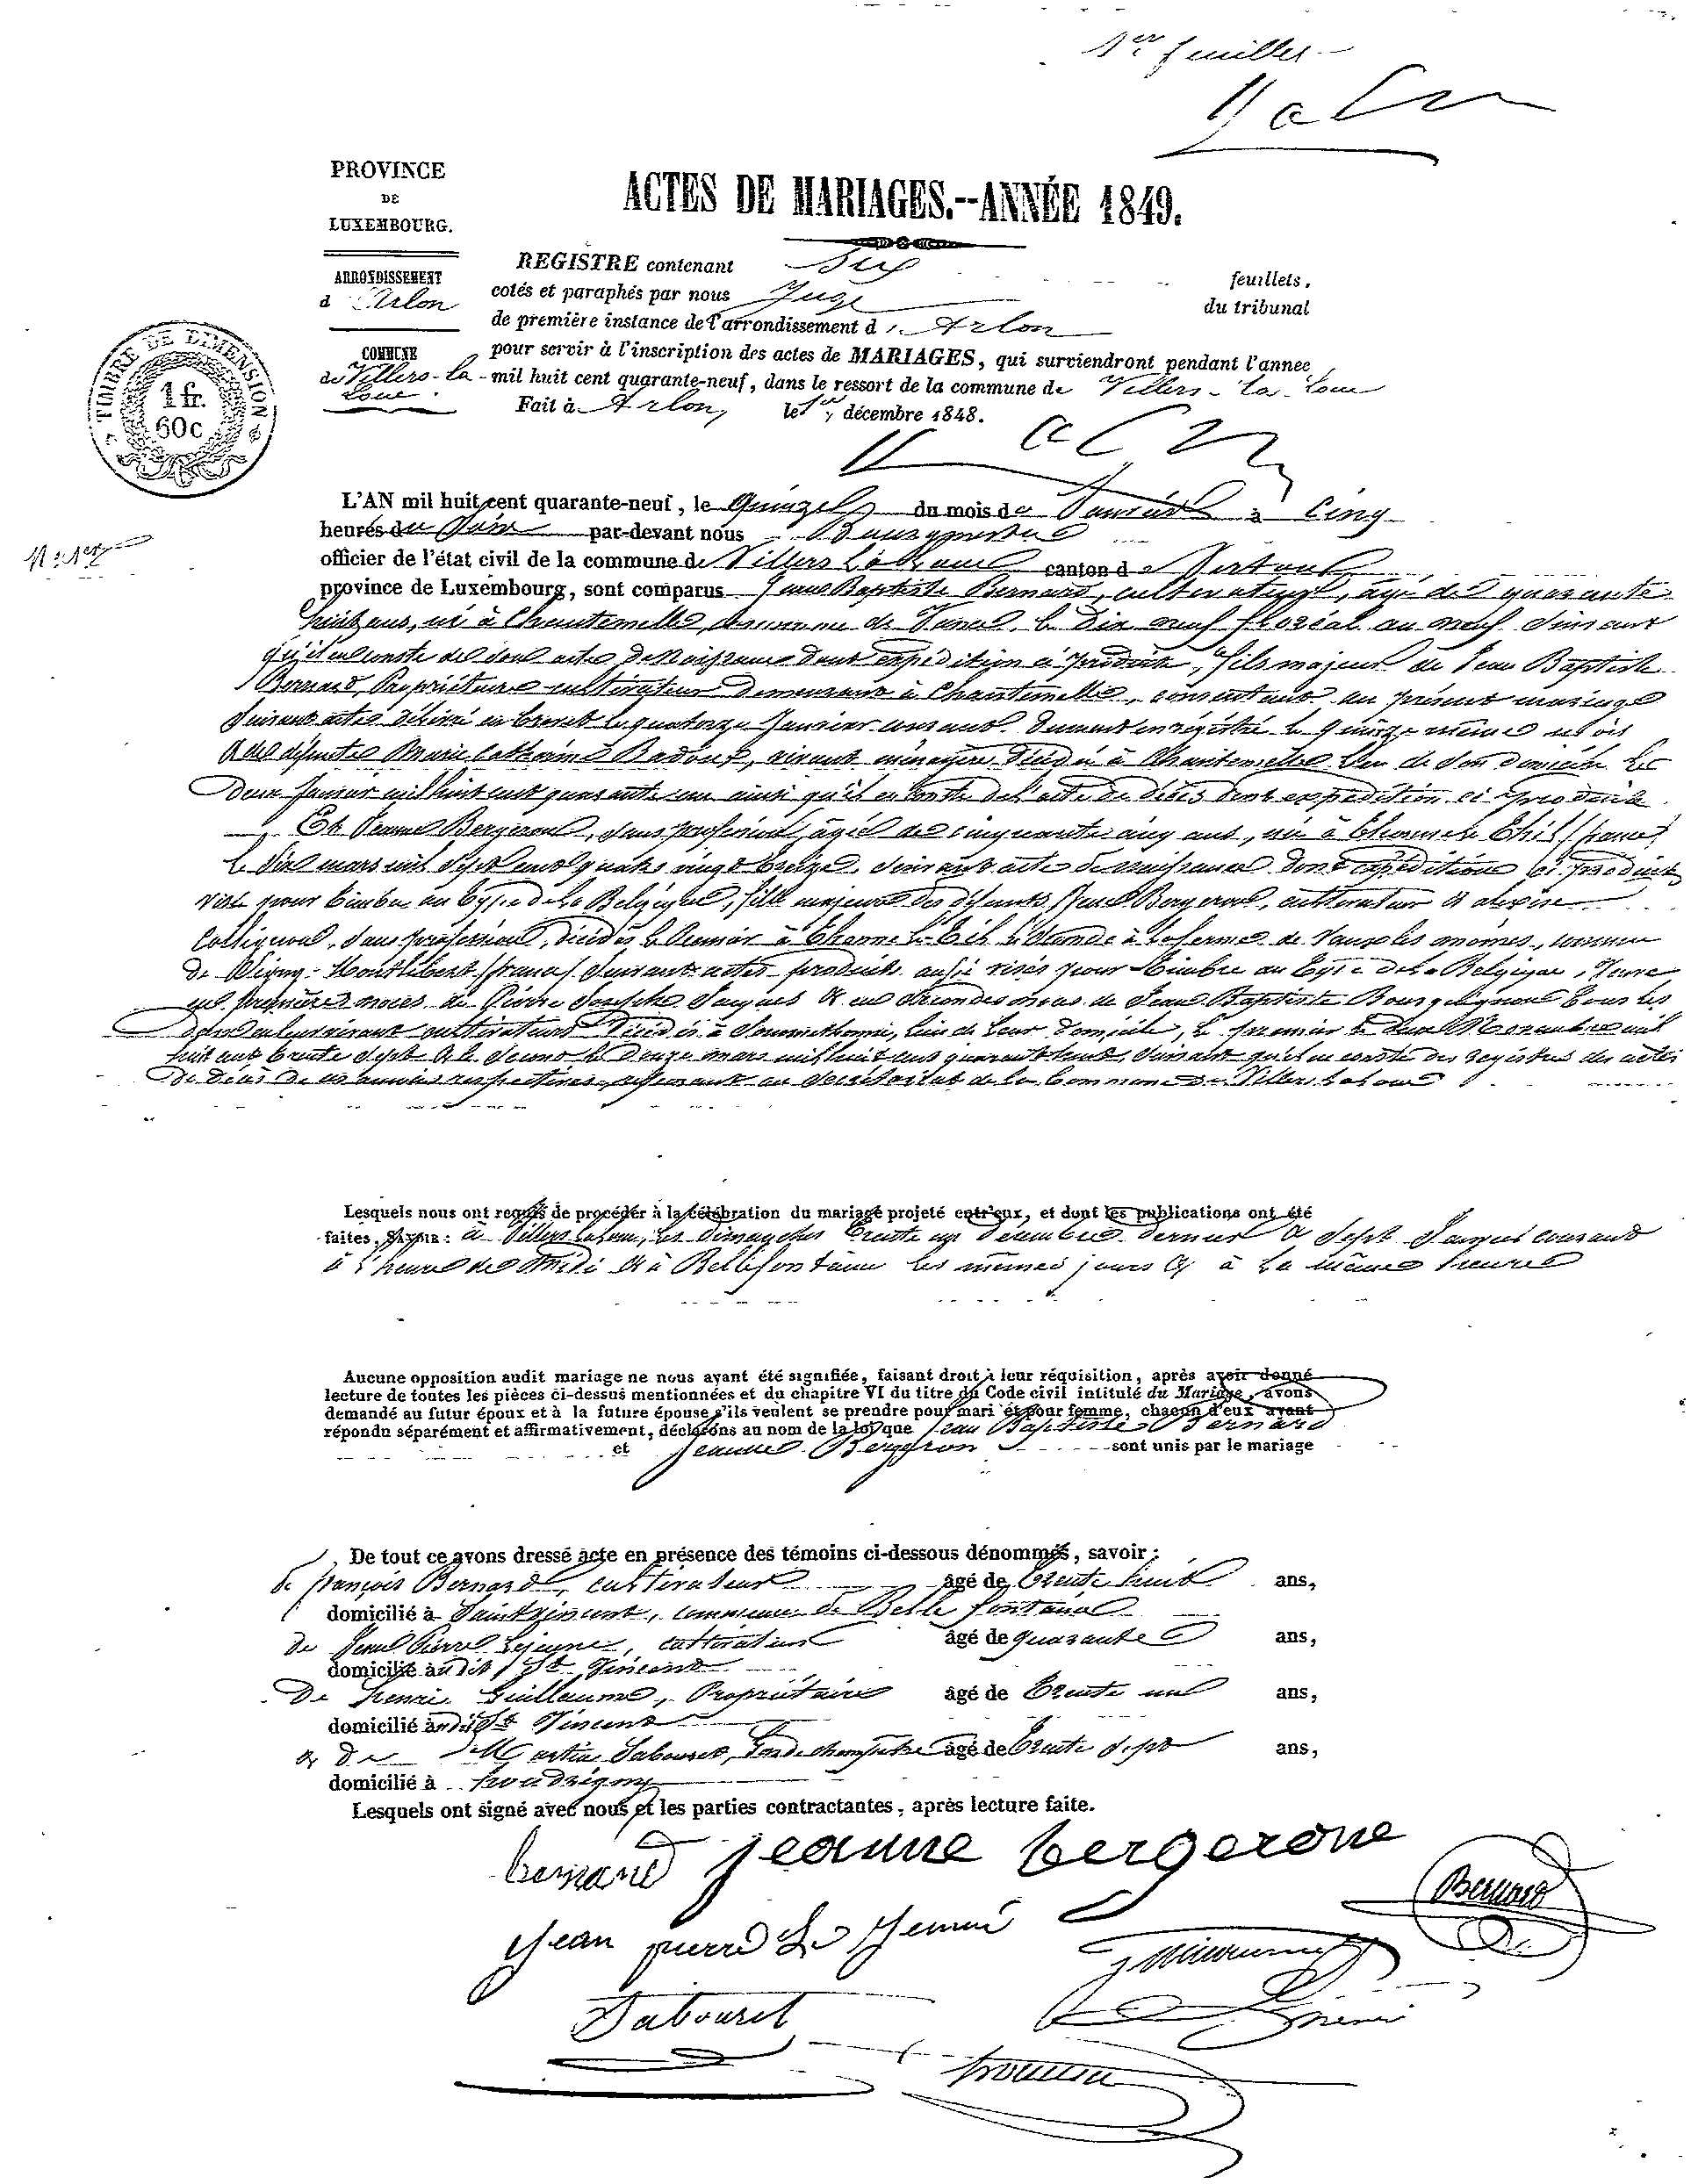 1er feuillet
PROVINCE
DE
LUXEMBOURG.
ARRONDISSEMENT
d'Arlon
COMMUNE
de Villers-la-
Loue.
TIMBRE DE DIMENSION
1 fr.
60 c
ACTES DE MARIAGES.--ANNÉE 1849.
REGISTRE contenant Six feuillets,
cotés et paraphés par nous Juge du tribunal
de première instance de l'arrondissement d'Arlon
pour servir à l'inscription des actes de MARIAGES, qui surviendront pendant l'annee
mil huit cent quarante-neuf, dans le ressort de la commune de Villers-la-Loue
Fait à Arlon, le 1er décembre 1848.
N° 1er
L'AN mil huit cent quarante-neuf, le Quinze du mois de Janvier à cinq
heures du Soir par-devant nous Bourgmestre
officier de l'état civil de la commune de Villers la Loue canton de Virton
province de Luxembourg, sont comparus Jean Baptiste Bernard, cultivateur, âgé de quarante
huit ans, né à Chantemelle, commune de Vance, le Dix neuf floréal an neuf suivant
qu'il en conste de son acte de Naissance dont expédition ci produite, fils majeur de Jean Baptiste
Bernard, Propriétaire cultivateur demeurant à Chantemelle, consentant au présent mariage
suivant acte délivré en brevet le quatorze Janvier courant dument enregistré le quinze même mois
& de défunte Marie Catherine Badoux, vivant ménagère décédée à Chantemelle lieu de son domicile le
deux Janvier mil huit cent quarante un ainsi qu'il en conste de l'acte de décès dont expédition ci produite
Et Jeanne Bergeron, sans profession, âgée de cinquante cinq ans, née à Charency le (france)
le dix mars mil sept cent quatre vingt treize, suivant acte de naissance dont expédition ci produite
visé pour timbre au type de la Belgique, fille majeure des défunts Jean Bergeron, cultivateur &
Collignon, sans profession, décédés le Premier à & la seconde à la ferme de Vaux les moines, commune
de Vigny-Montlibert (france) suivant actes produits aussi visés pour timbre au type de la Belgique, Veuve
en première noces de Pierre Joseph Jacques & en secondes noces de Jean Baptiste Bourguignon tous les
deux en leur vivant cultivateurs Décédés à Sommethonne, lieu de leur domicile, le premier le deux Novembre mil
huit cent trente sept & le second le douze mars mil huit cent quarante huit, suivant qu'il en conste des registres des actes
de décès de ces années respectives, reposant au secrétariat de la Commune de Villers la Loue
Lesquels nous ont requis de procéder à la célébration du mariage projeté entr'eux, et dont les publications ont été
faites, SAVOIR : à Villers la Loue, les dimanches trente un décembre dernier & Sept Janvier courant
à l'heure de Midi & à Bellefontaine les mêmes jours & à la même heure
Aucune opposition audit mariage ne nous ayant été signifiée, faisant droit à leur réquisition, après avoir donné
lecture de toutes les pièces ci-dessus mentionnées et du chapitre VI du titre du Code civil intitulé du Mariage, avons
demandé au futur époux et à la future épouse s'ils veulent se prendre pour mari et pour femme, chacun d'eux ayant
répondu séparément et affirmativement, déclarons au nom de la loi que Jean Baptiste Bernard
et Jeanne Bergeron sont unis par le mariage
De tout ce avons dressé acte en présence des témoins ci-dessous dénommés, savoir :
de françois Bernard, cultivateur âgé de trente huit ans,
domicilié à Saint Vincent, commune de Bellefontaine
de Jean Pierre Lejeune, cultivateur âgé de quarante ans,
domicilié audit St Vincent
De henri Guillaume, Propriétaire âgé de trente un ans,
domicilié audit St Vincent
& De Martin Tabouret, garde champêtre âgé de trente sept ans,
domicilié à houdrigny
Lesquels ont signé avec nous et les parties contractantes, après lecture faite.
bernard jeanne bergerone
Bernard
Jean pierre Le Jeune
Tabouret